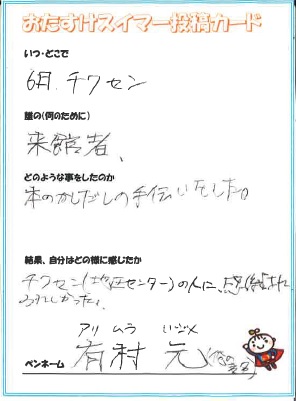 おたすけスイマー投稿カード
いつ・どこで
6月、チクセン
誰の(何のために)
来館者、
どのような事をしたのか
本のかしだしの手伝いをした。
結果、自分はどの様に感じたか
チクセン(地区センター)の人に、感謝されて
うれしかった。
アリ ムラ いジメ
ペンネーム 有村 元